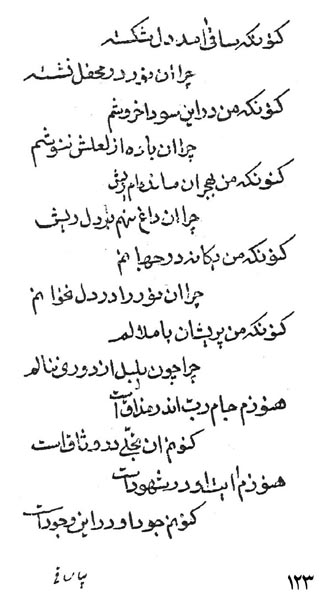 کنونکه ساقی آمد دل شکسته
چرا ان نور در محفل نشسته
کنونکه من در این سودا خروشم
چرا ان باده از لعلش ننوشم
کنونکه من بهجران مانده ام پیش
چرا ان داغ نهم بر دل ریش
کنونکه من یگانه در جهانم
چرا ان نور را در دل نخوانم
کنونکه من پریشان با ملالم
چرا چون بلبل از دوری ننالم
هنوزم جام رب اندر مذاق است
کنونم ان تجلی در وثاق است
هنوزم ایت او در شهود است
کنونم جود او در این وجود است
۱۲۳